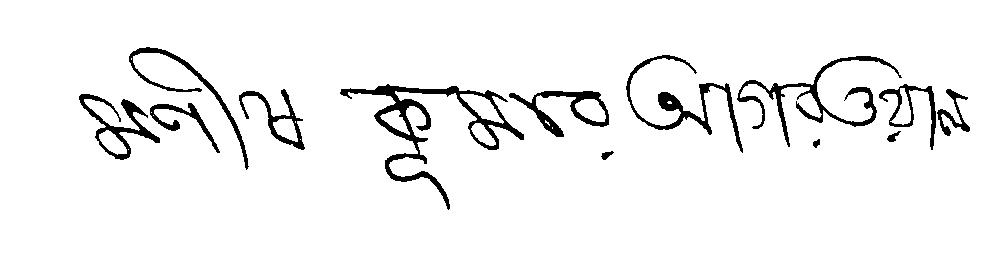 মণীষ কুমার আগারওয়াল